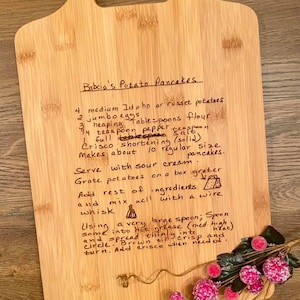 Bubcia's Potato Pancakes
4 medium Idaho or russet potatoes
2 jumbo eggs
3 heaping tablespoons flour
1/4 teaspoon pepper
1 full salt
Crisco shortening (solid)
Makes about 10 regular size
pancakes.
Serve with sour cream.
Grate potatoes on a box grater
Add rest of ingredients
and mix all with a wire
whisk
Using a very large spoon, spoon
some into hot grease (med high heat)
and spread thin into
circle. Brown til crisp and
turn. Add crisco when needed.